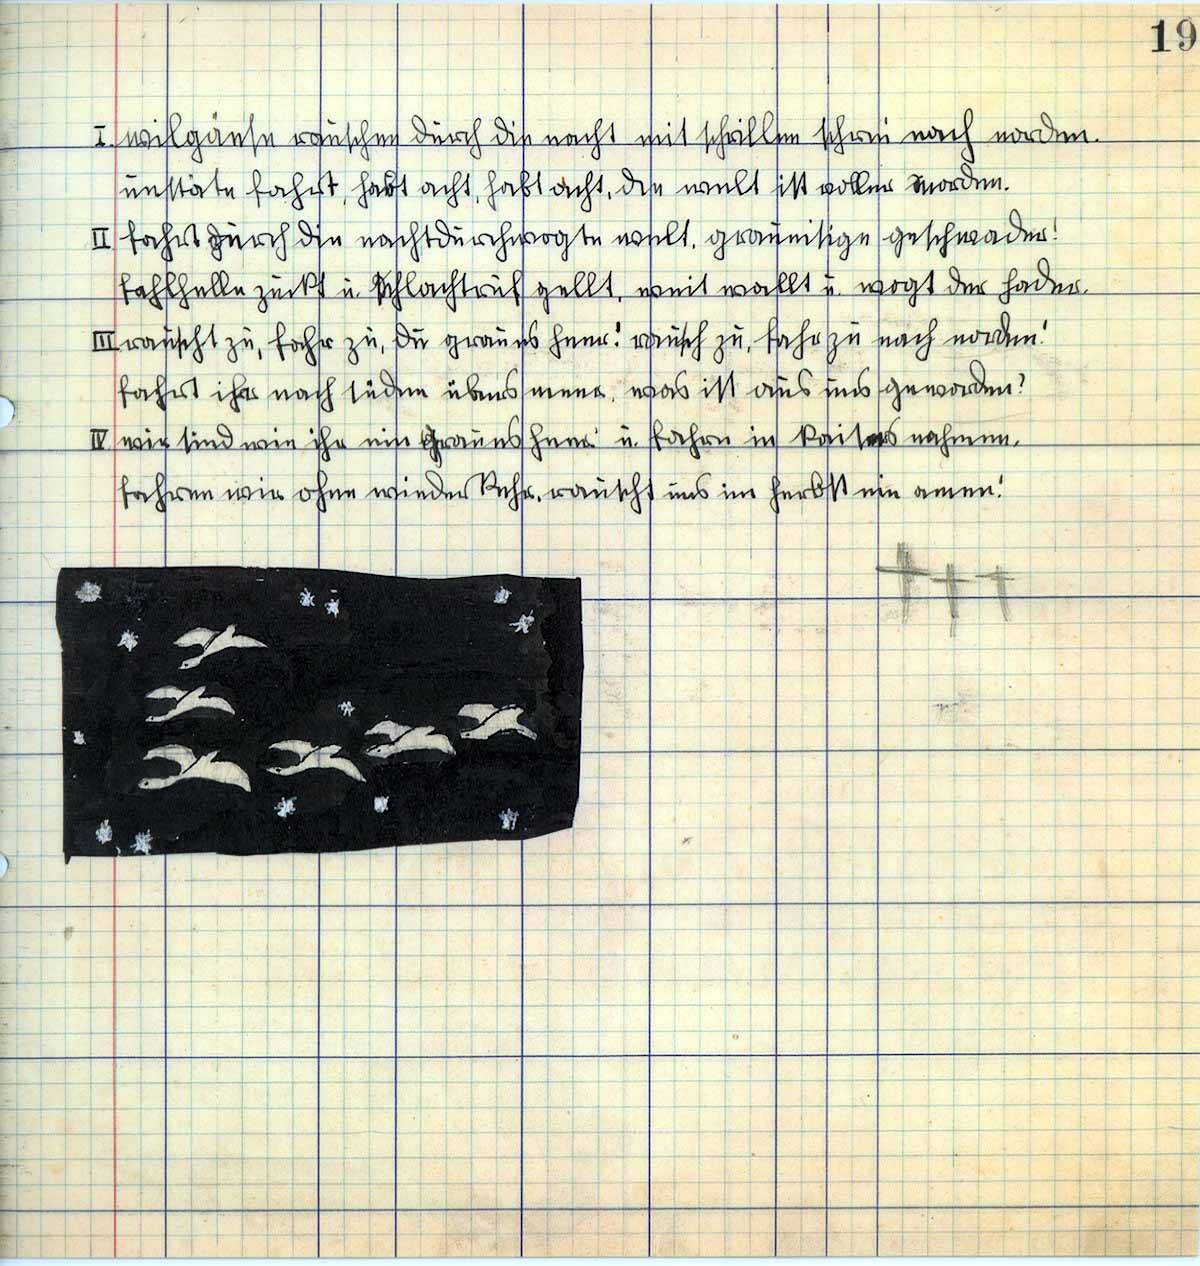 19
I. wilgänse rauschen durch die nacht mit schrillem schrei nach norden.
unstäte fahrt, habt acht, habt acht, die welt ist voller morden.
II fahrt durch die nachtdurchwogte welt, graureisige geschwader!
fahlhelle zuckt u. schlachtruf gellt, weit wallt u. wogt der hader.
III rauscht zu, fahr zu, du graues heer! rausch zu, fahr zu nach norden!
fahrt ihr nach süden übers meer, was ist aus uns geworden?
IV wir sind wie ihr ein graues heer u. fahrn in kaisers nahmen,
fahren wir ohne wiederkehr, rauscht uns im herbst ein amen!